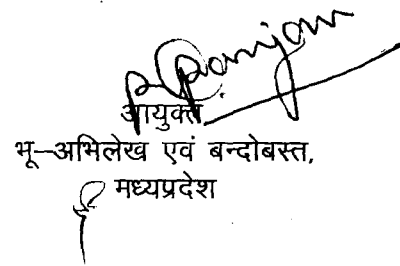 आयुक्त
भू–अभिलेख एवं बन्दोबस्त,
मध्यप्रदेश